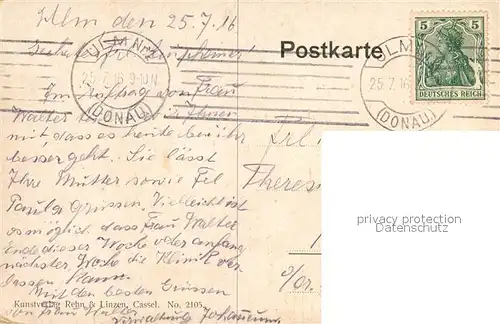 Ulm den 25.7.16
ULM Nr2
25.7.16.9-10V.
(DONAU)
Postkarte
ULM
25.7.16
(DONAU)
5 5
DEUTSCHES REICH
Im Auftrag von Frau
Walter Ihnen
mit, dass es heute bei ihr
besser geht. Sie lässt
Ihre Mutter sowie Frl
Paula Grüssen. Vielleicht ist
es möglich dass Frau Walter
Ende dieser Woche oder anfang
nächster Woche die Klinik ver-
lassen kann.
Mit den besten Grüssen
von Frau Walter
Frl
Theres
privacy protection
designed
Kunstverlag Rehn & Linzen, Cassel. No. 2105.